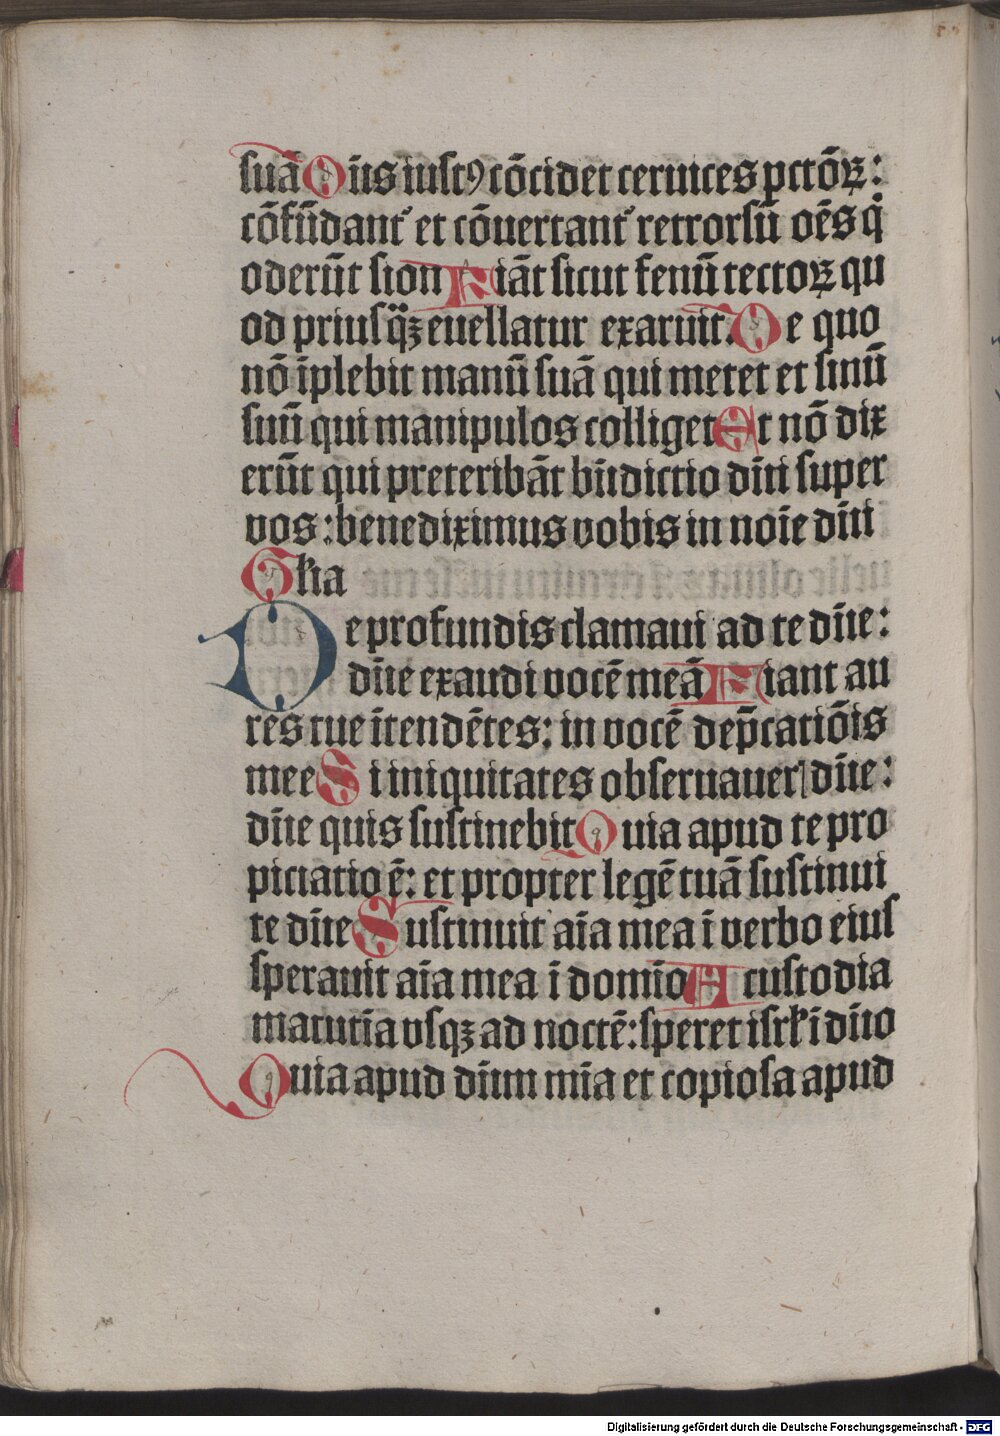 suā Dn̄s iustꝯ cōcidet ceruices pctōꝝ:
cōfūdant᷑ et cōuertant᷑ retrorsū oēs q̇
oderūt sion Fiāt sicut fenū tectoꝝ qu
od priusq̄ꝫ euellatur exaruit. De quo
nō īplebit manū suā qui metet et sinū
suū qui manipulos colliget Et nō dix
erūt qui preteribāt bn̄dictio dn̄i super
vos: benediximus vobis in noīe dn̄i
Gl̄ia
De profundis clamaui ad te dn̄e:
dn̄e exaudi vocē meā Fiant au
res tue ītendētes: in vocē dep̄catiōis
mee Si iniquitates obseruauer̄ dn̄e:
dn̄e quis sustinebit Quia apud te pro
piciatio ē: et propter legē tuā sustinui
te dn̄e Sustinuit aīa mea ī verbo eius
sperauit aīa mea ī domīo A custodia
matutīa vsqꝫ ad noctē: speret isrl̄ ī dn̄o
Quia apud dn̄um mīa et copiosa apud
Digitalisierung gefördert durch die Deutsche Forschungsgemeinschaft - DFG